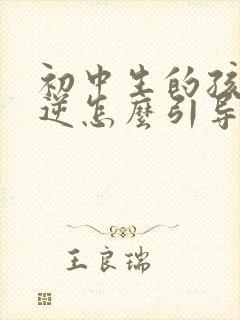 初中生的孩
逆怎麽引导
王良瑞